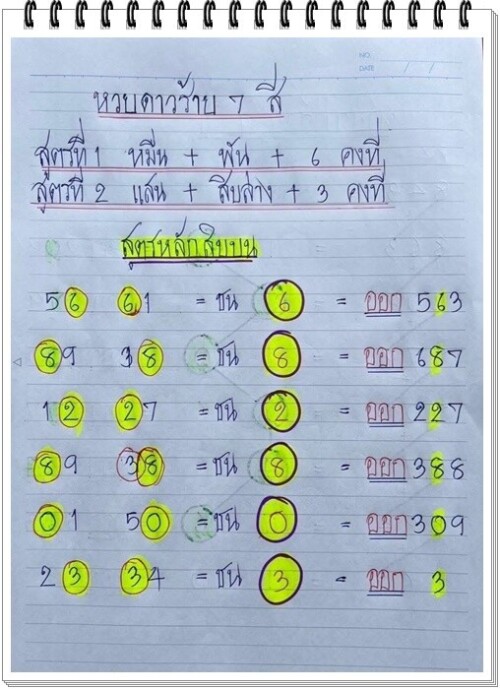 NO.
DATE / /
หวบดาวร้าบ 7 สี
สูตรที่ 1 หมื่น + พัน + 6 คงที่
สูตรที่ 2 แสน + สิบล่าง + 3 คงที่
สูตรหลักสิบบน
56 61 = ชน 6 = ออก 563
89 38 = ชน 8 = ออก 687
12 27 = ชน 2 = ออก 227
89 38 = ชน 8 = ออก 388
01 50 = ชน 0 = ออก 309
23 34 = ชน 3 = ออก 3